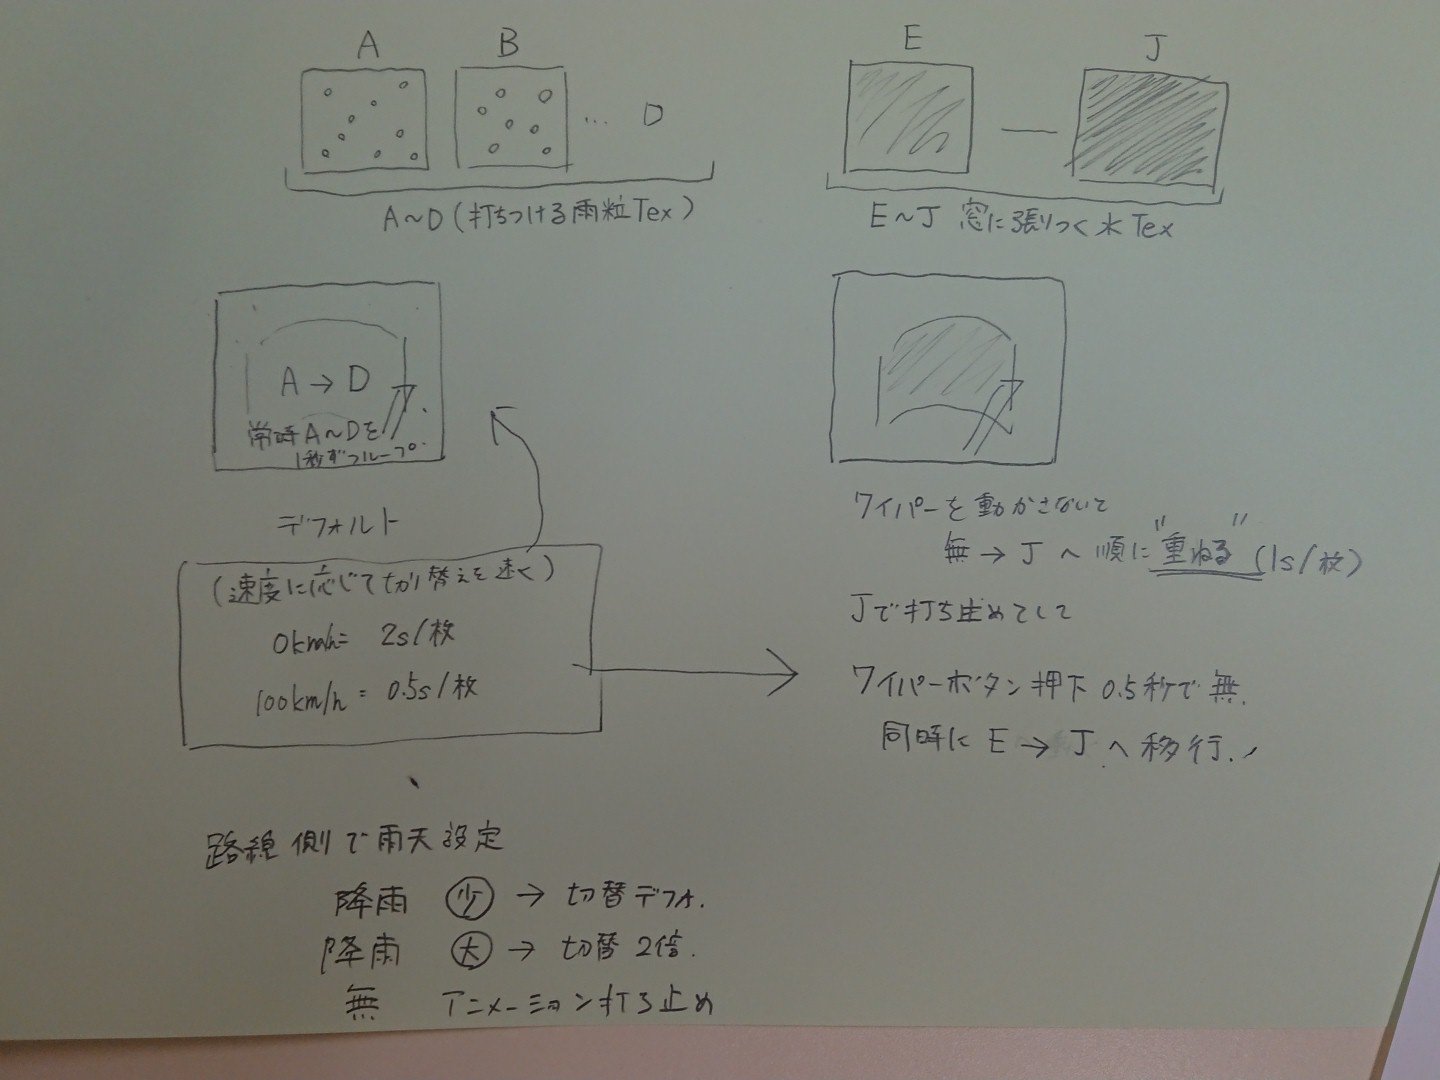 A
B
… D
E
J
A~D(打ちつける雨粒Tex)
E~J 窓に張りつく水Tex
A→D
常時A~Dを
1秒ずつループ.
デフォルト
(速度に応じて切り替えを速く)
0km/h= 2s/枚
100km/h = 0.5s/枚
ワイパーを動かさないで
無→Jへ順に"重ねる"(1s/枚)
Jで打ち止めでして
ワイパーボタン押下 0.5秒で無.
同時に E→Jへ移行.
路線側で雨天設定
降雨 少 → 切替デフォ.
降雨 大 → 切替2倍.
無 アニメーション打ち止め